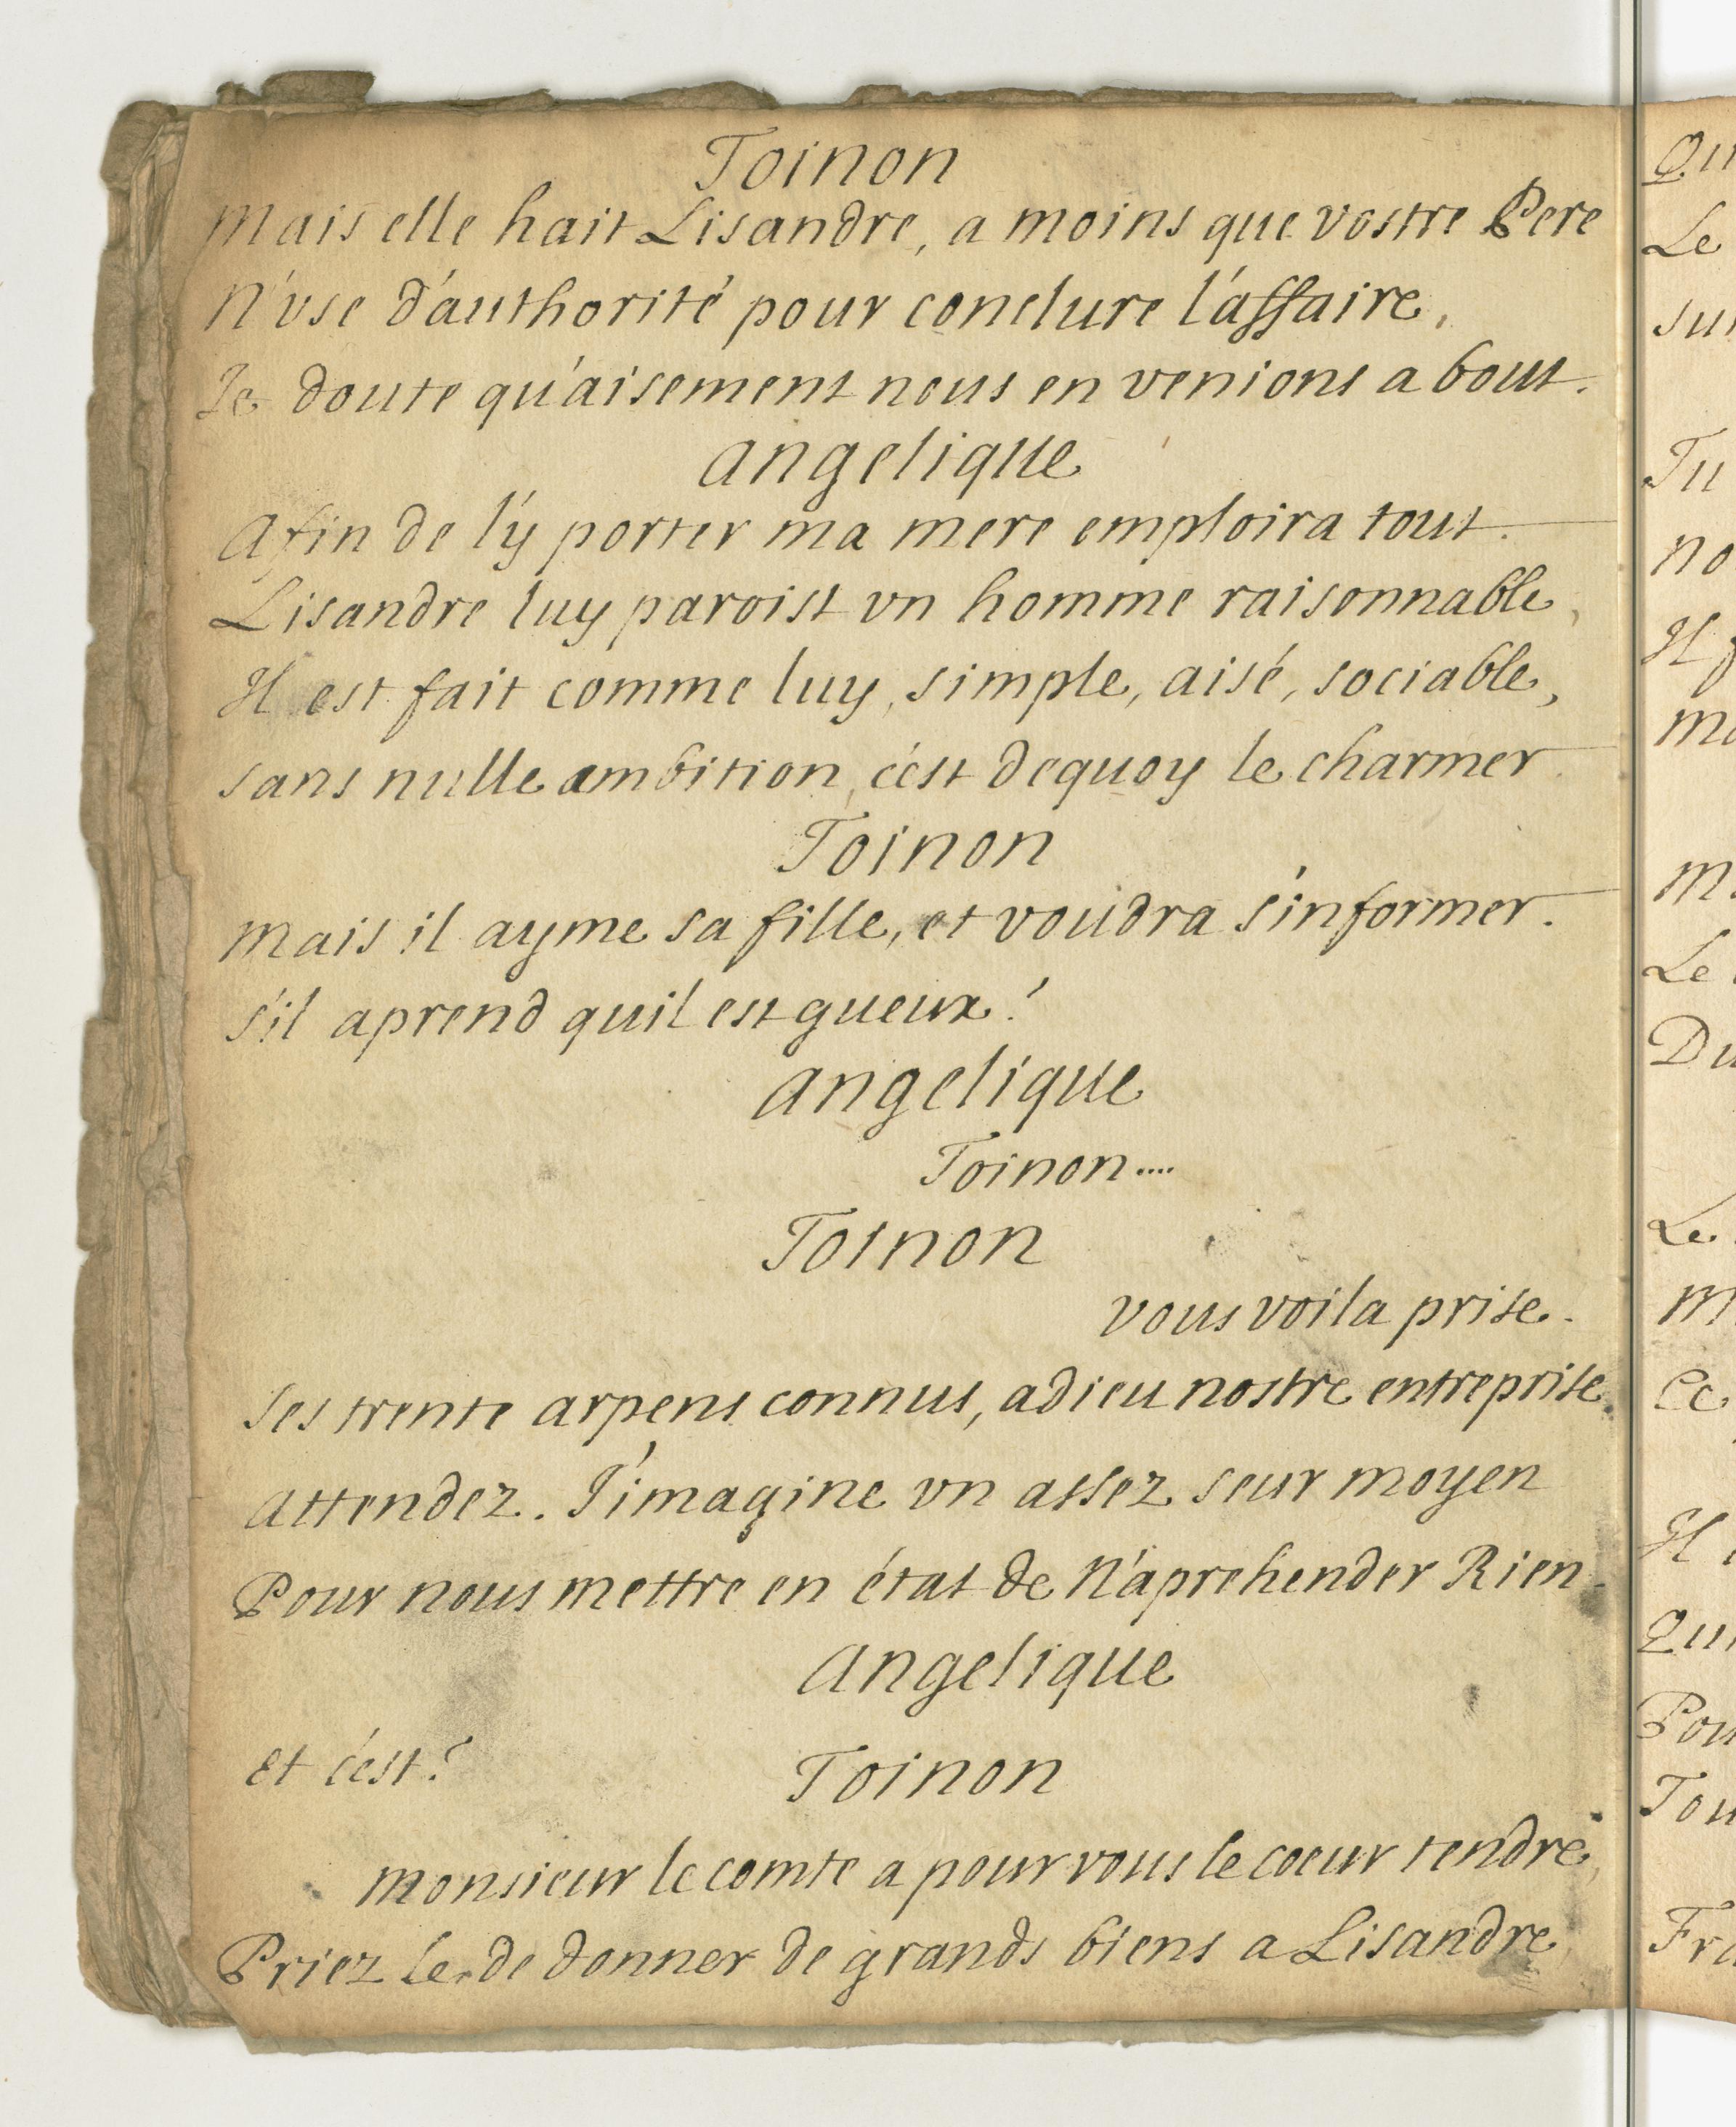 Toinon
Mais elle hait Lisandre, a moins que vostre Pere
N'vse d'authorité pour conclure l'affaire,
Je doute qu'aisement nous en venions a bout.
Angelique
Afin de l'y porter ma mere emploira tout.
Lisandre luy paroist vn homme raisonnable,
Il est fait comme luy, simple, aisé, sociable,
sans nulle ambition, c'est dequoy le charmer.
Toinon
Mais il ayme sa fille, et voudra s'informer.
s'il aprend quil est gueux?
Angelique
Toinon....
Toinon
vous voila prise.
ses trente arpens connus, adieu nostre entreprise.
Attendez. J'imagine vn assez seur moyen
Pour nous mettre en état de N'aprehender Rien.
Angelique
Et c'est?
Toinon
Monsieur le comte a pour vous le coeur tendre,
Priez le de donner de grands biens a Lisandre,
Qu
Le
sur
Tu
no
Il f
Ma
M
Le
Du
Le
M
Ce
Il
Qui
Pou
Tou
Fra